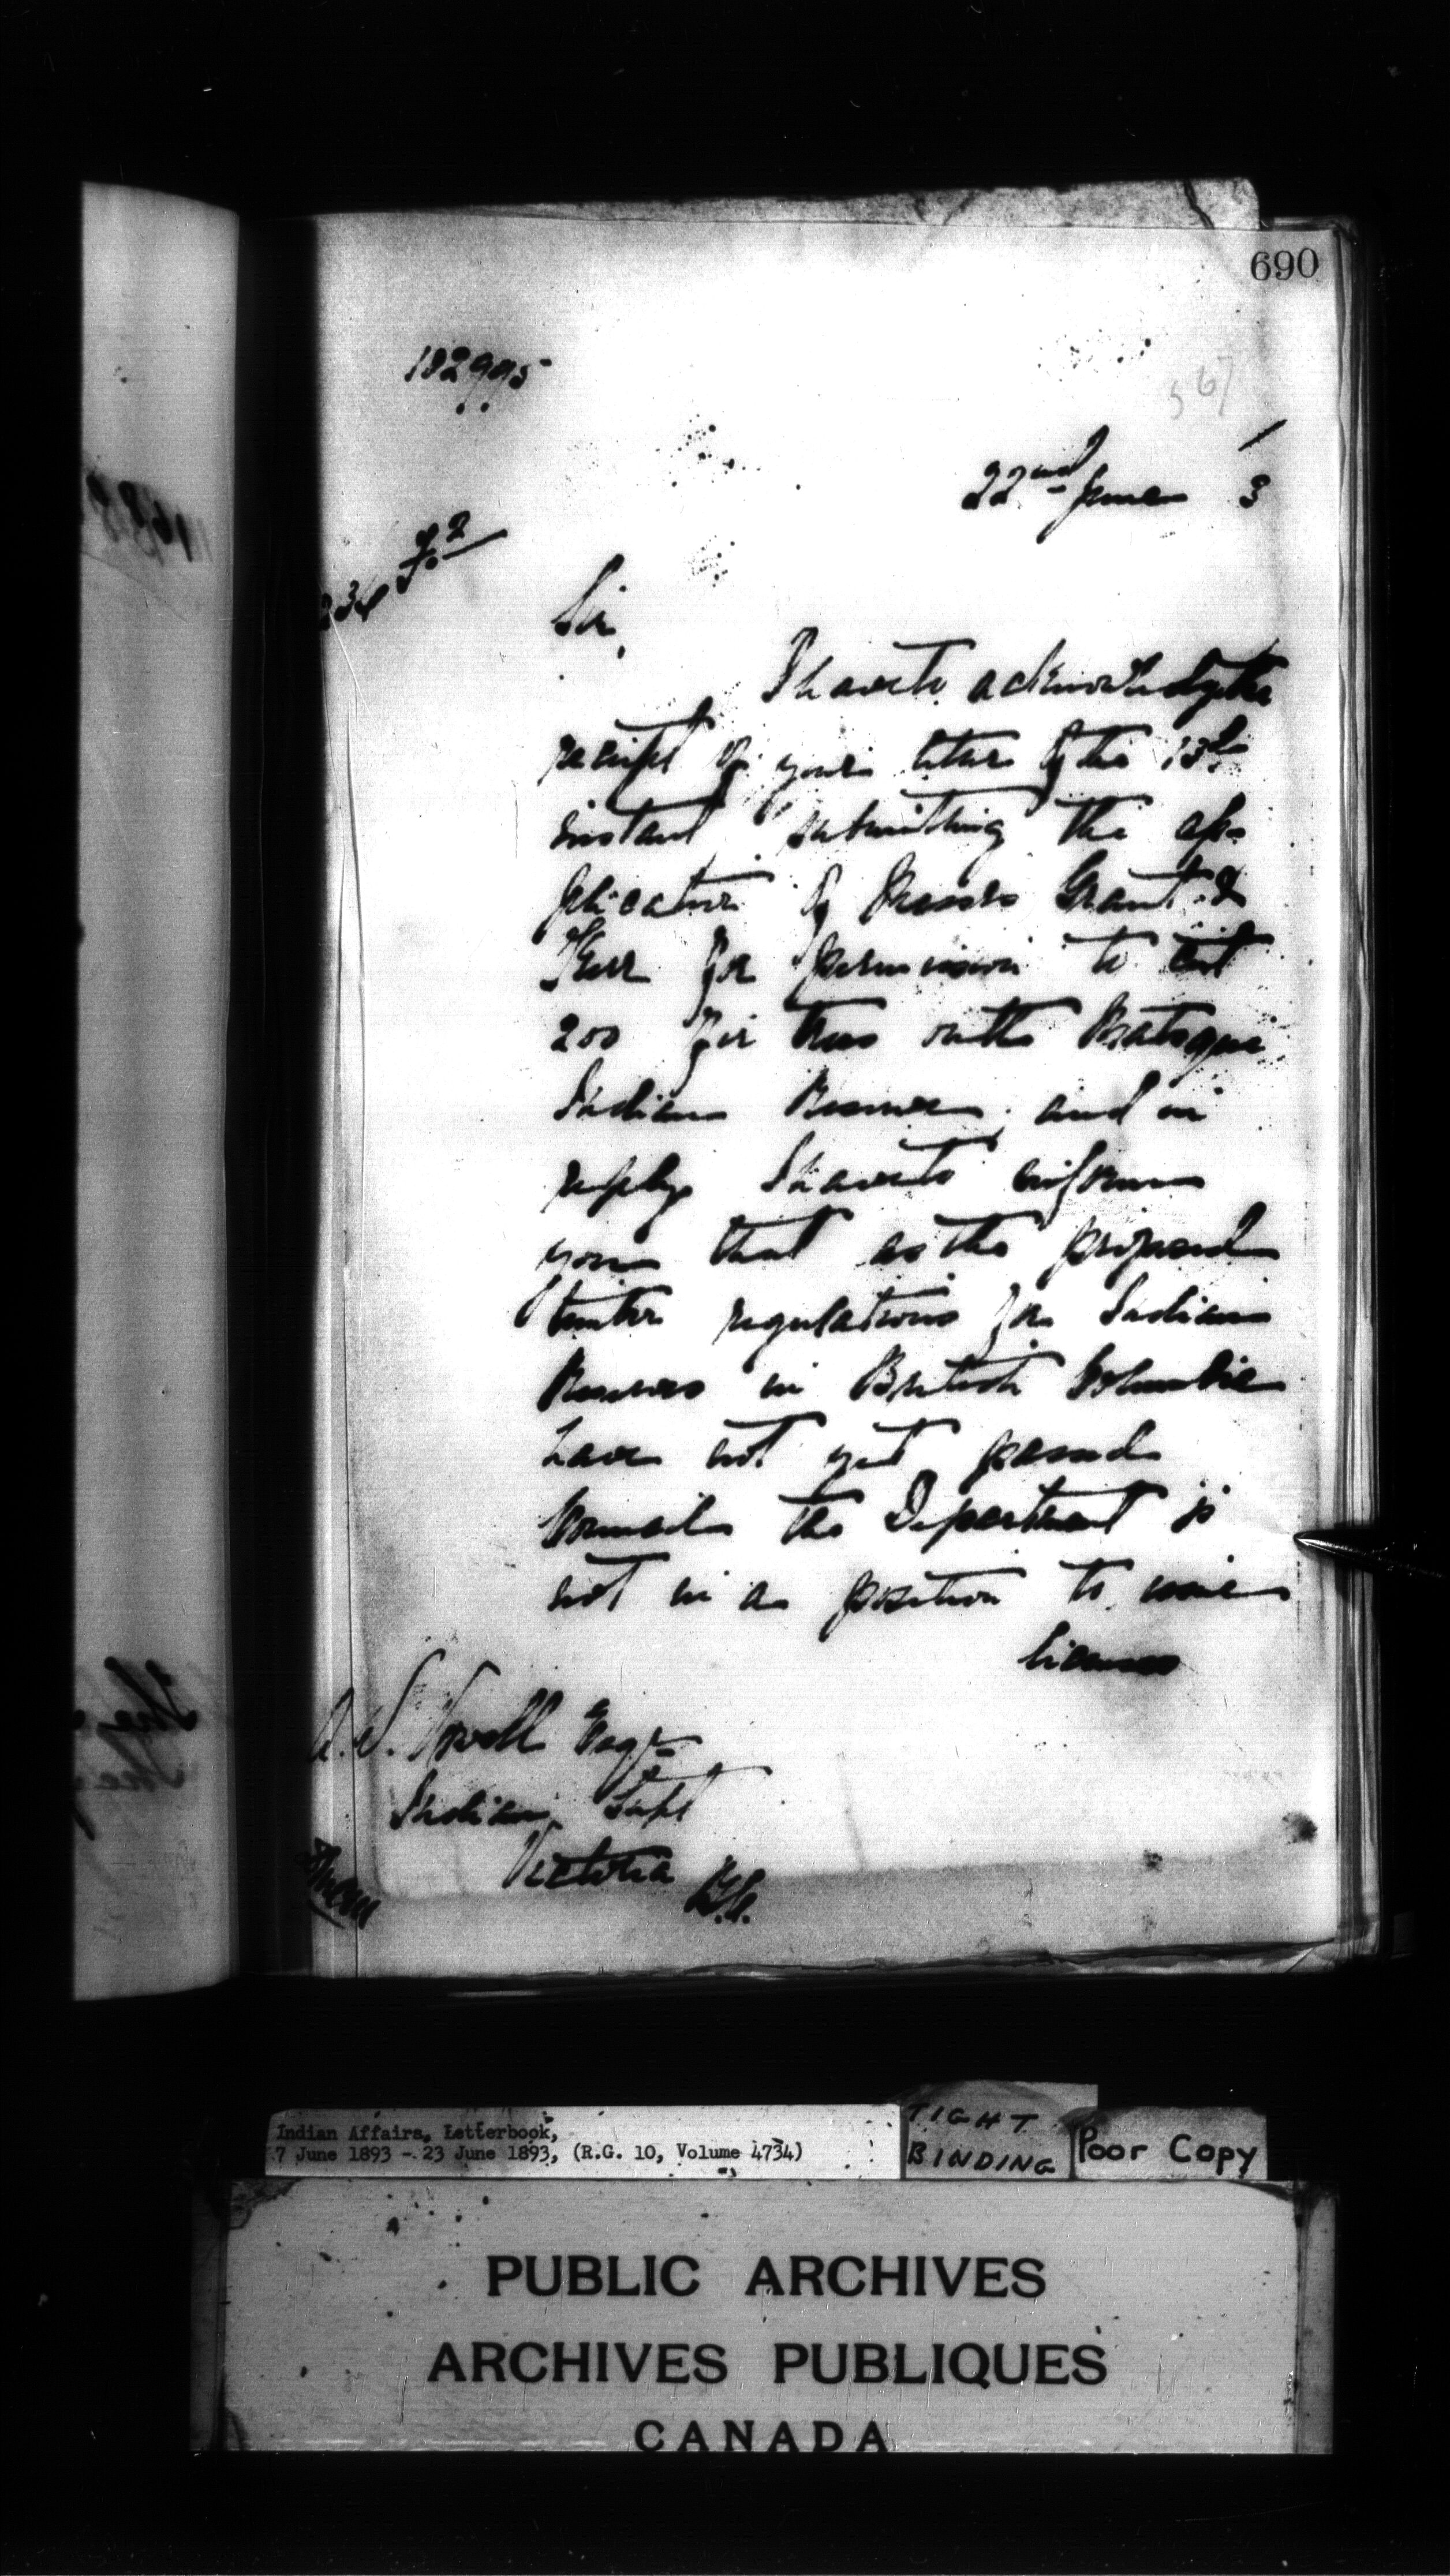 690
132995
567
22nd June 3
234
Sir,
I have to acknowledge the
receipt of your letter of the 13th
instant submitting the ap-
plication of Messrs Grant &
Kerr for permission to cut
200 fir trees on the Matsqui
Indian Reserve, and in
reply I have to inform
you that as the proposed
timber regulations for Indian
Reserves in British Columbia
have not yet passed
Council the Department is
not in a position to issue
licenses
A. W. Vowell Esqr
Indian Supt
Victoria B.C.
Indian Affairs, Letterbook,
7 June 1893 - 23 June 1893, (R.G. 10, Volume 4734)
TIGHT
BINDING
Poor Copy
PUBLIC ARCHIVES
ARCHIVES PUBLIQUES
CANADA